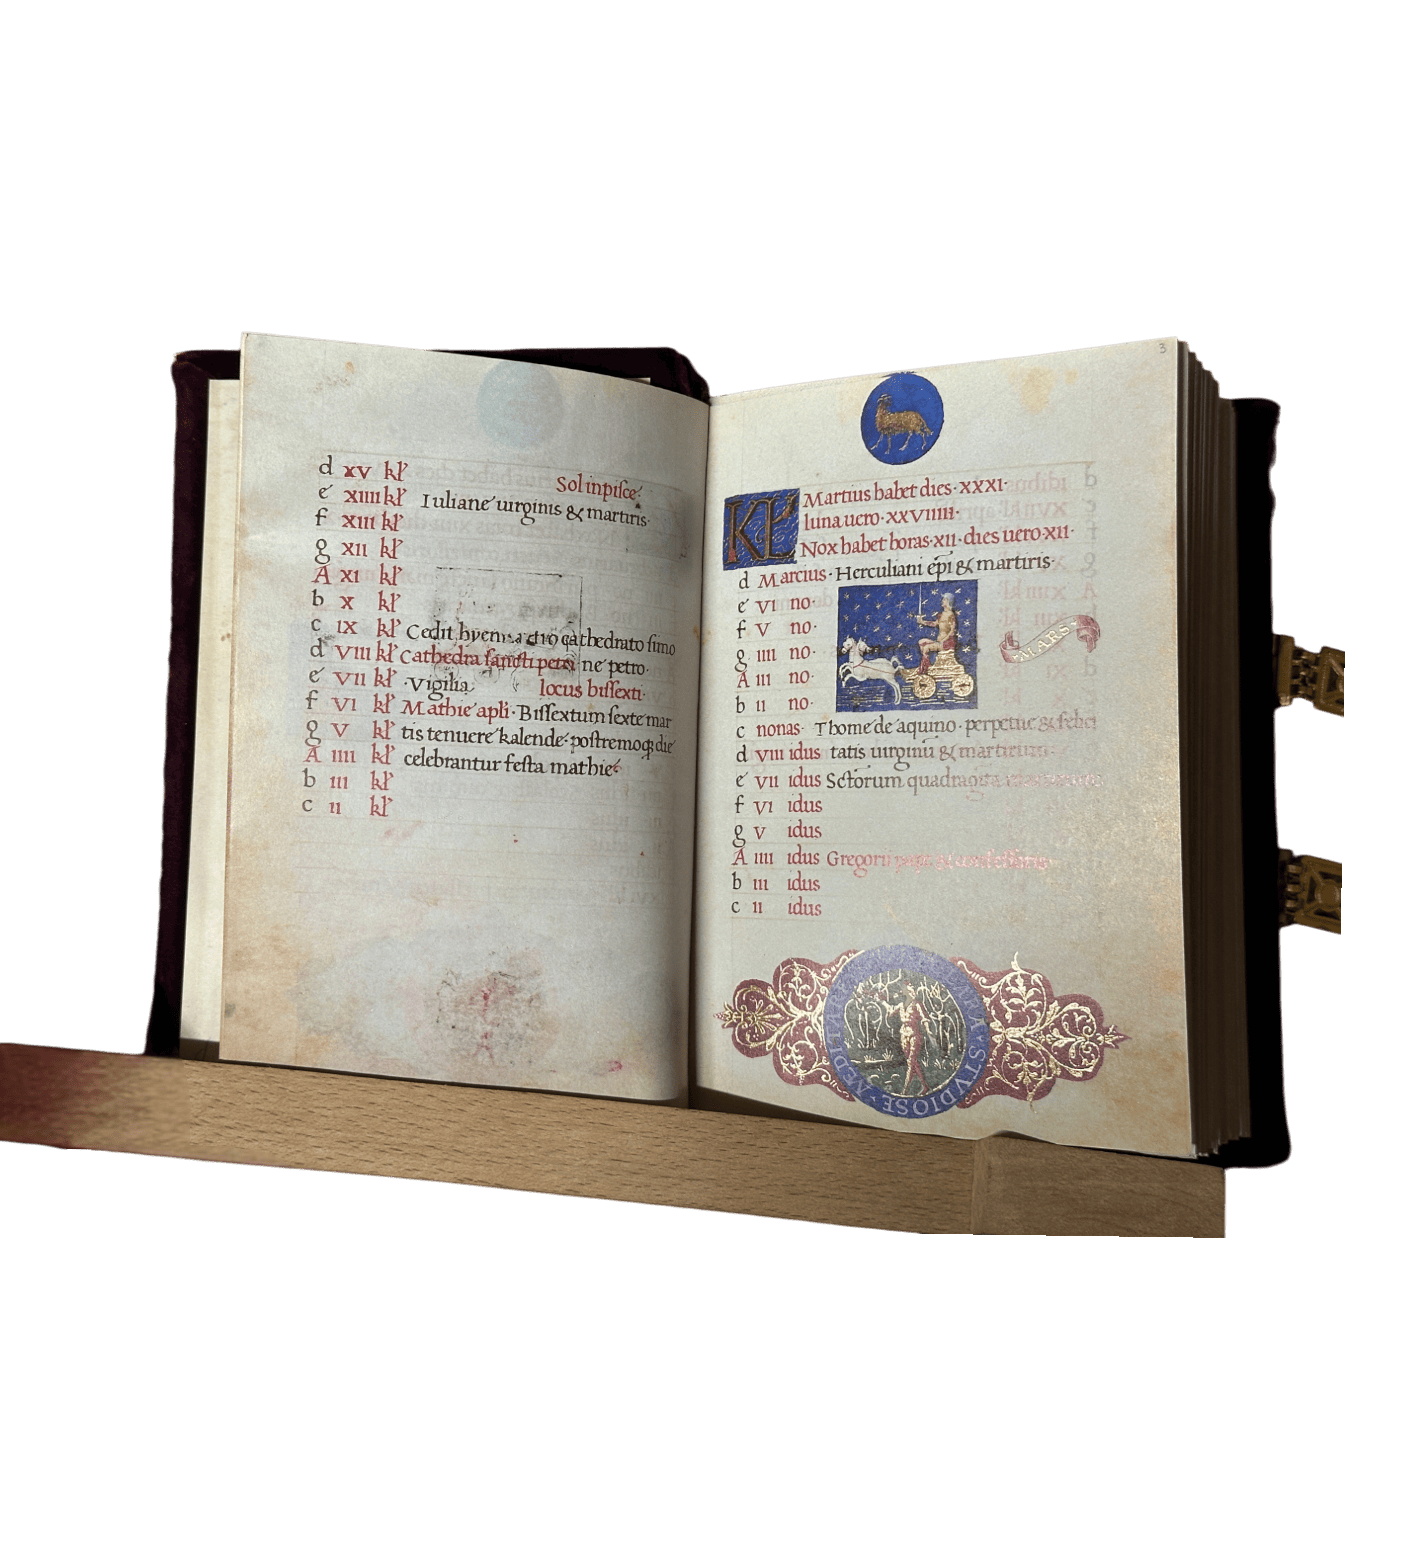 d xv kl̛ Sol in pisce
e xiiii kl̛ Iuliane uirginis & martiris·
f xiii kl̛
g xii kl̛
A xi kl̛
b x kl̛
c ix kl̛ Cedit hyems cathedrato simo
d viii kl̛ Cathedra sancti petri ne petro·
e vii kl̛ ·Vigilia locus bissexti·
f vi kl̛ Mathie apl̄i· Bissextum sexte mar
g v kl̛ tis tenuere kalende· postremoq; die
A iiii kl̛ celebrantur festa mathie·
b iii kl̛
c ii kl̛
3
KL Martius habet dies·xxxi·
luna uero·xxviiii·
Nox habet horas·xii·dies uero xii·
d Marcius· Herculiani ep̄i & martiris·
e vi no·
f v no·
g iiii no·
A iii no·
b ii no·
·MARS·
c nonas· Thome de aquino· perpetue & felici
d viii idus tatis uirginū & martirum·
e vii idus Sc̄torum quadraginta
f vi idus
g v idus
A iiii idus Gregorii pape &
b iii idus
c ii idus
STVDIOSE